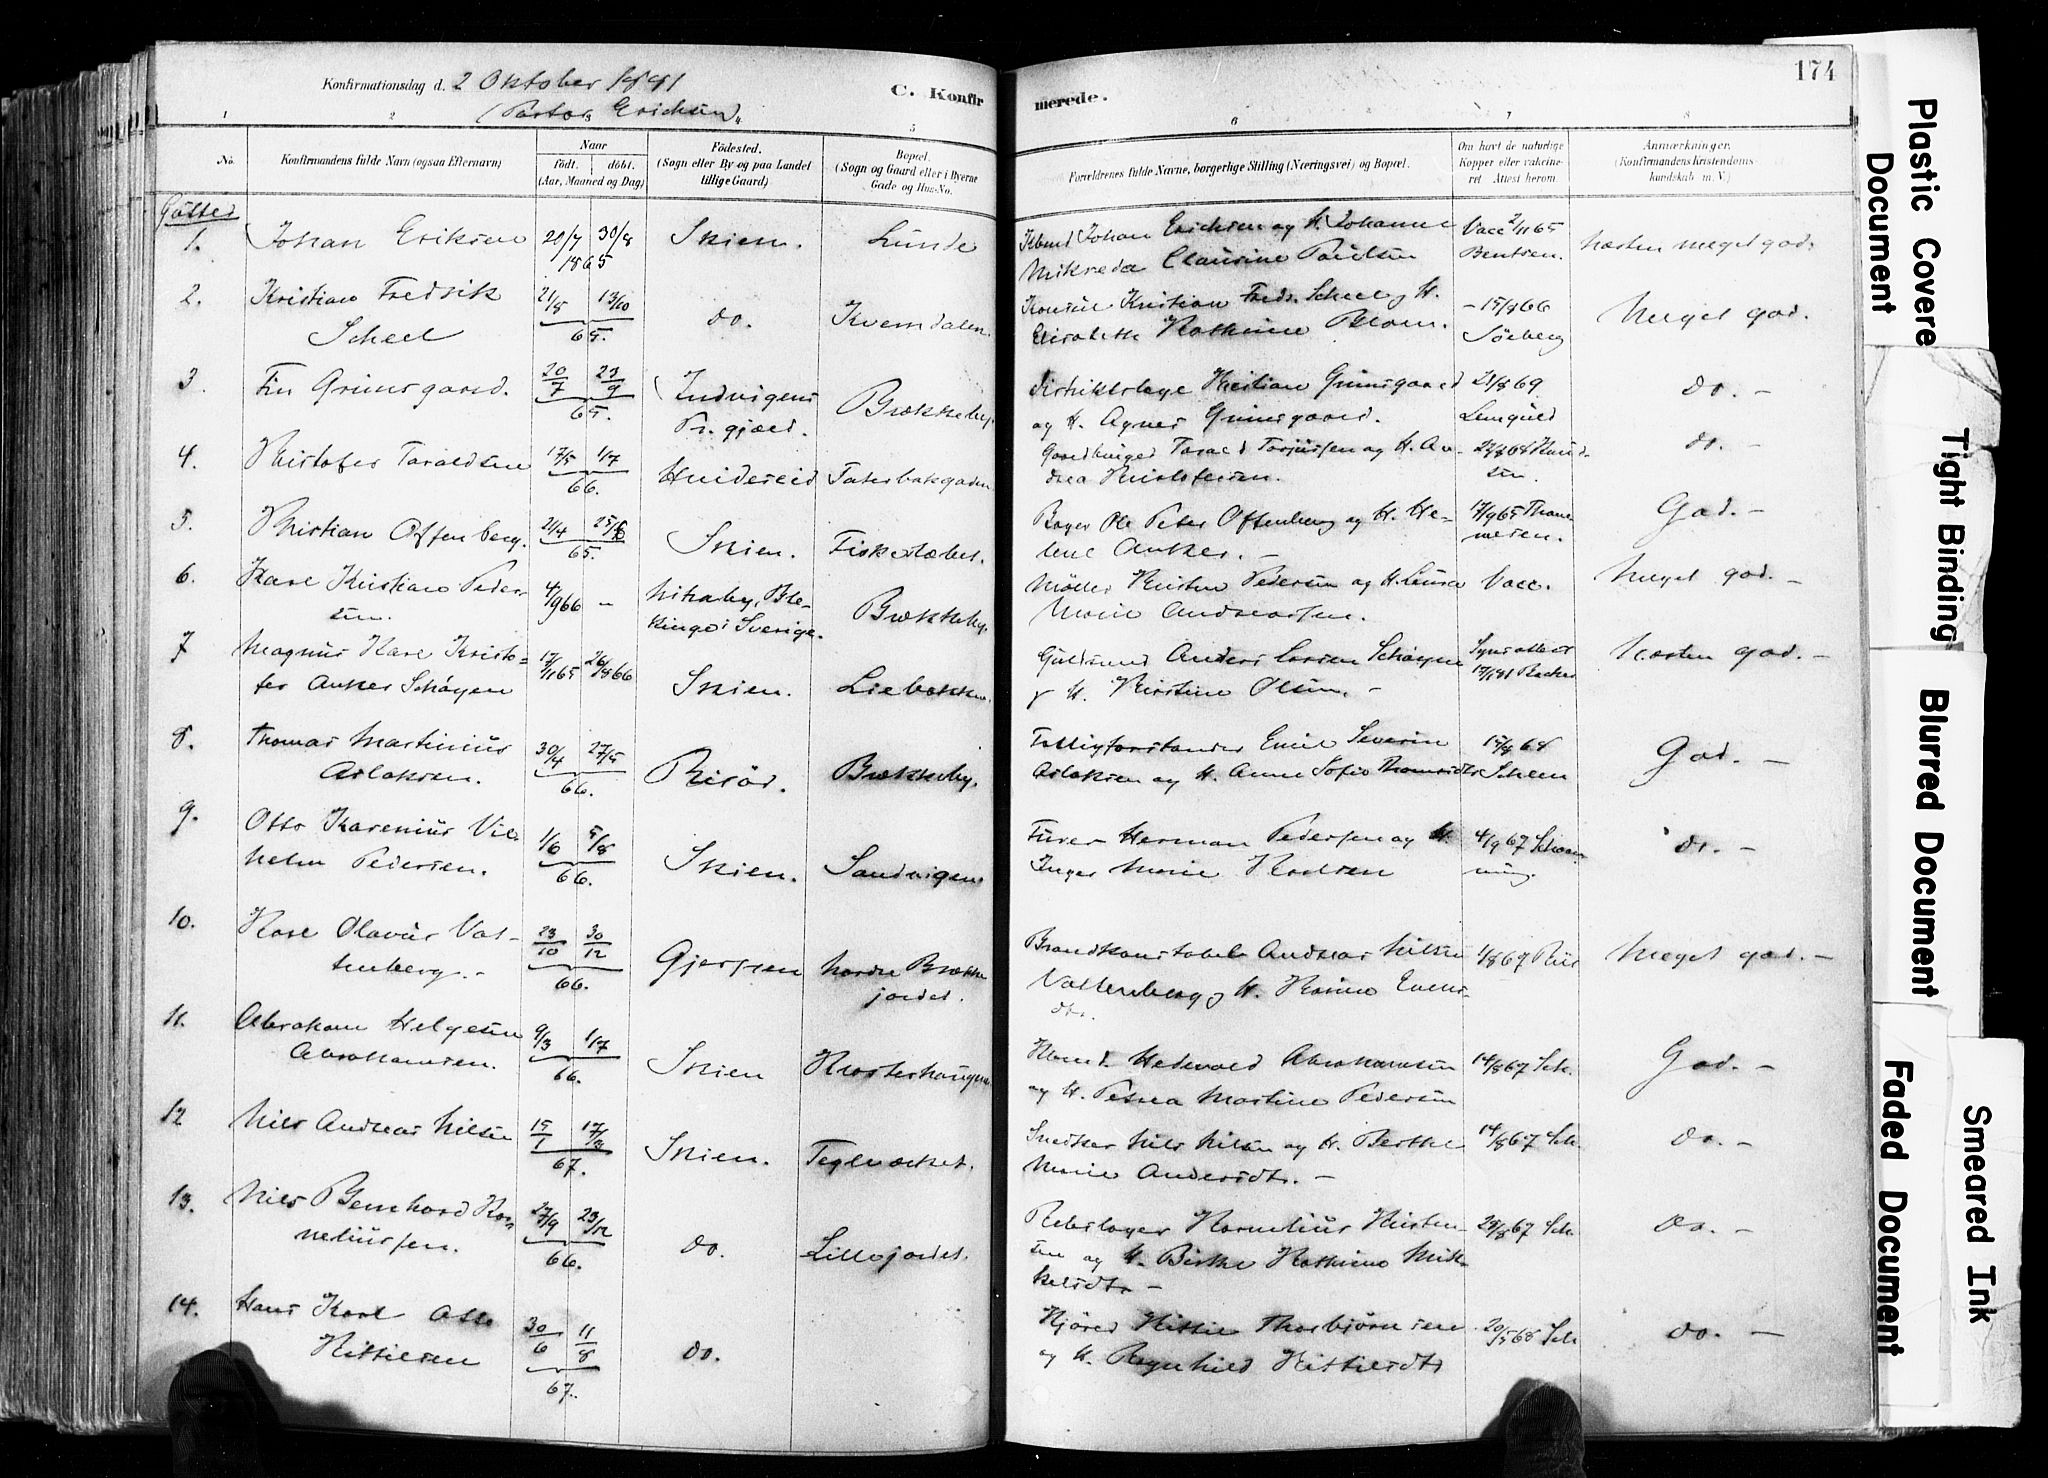 Konfirmationsdag d. 2 Oktober 1881
(Pastor Ericksen)
C. Konfirmerede.
174
1 2 3 4 5 6 7 8
No.
Konfirmandens fulde Navn (ogsaa Efternavn)
Naar
födt. döbt.
(Aar, Maaned og Dag)
Födested.
(Sogn eller By og paa Landet
tillige Gaard)
Bopæl.
(Sogn og Gaard eller i Byerne
Gade og Hus-No.
Forældrenes fulde Navne, borgerlige Stilling (Næringsvei) og Bopæl.
Om havt de naturlige
Kopper eller vaksine-
ret Attest herom.
Anmærkninger.
(Konfirmandens Kristendoms-
kundskab m. V.)
Gutter
1. Johan Eriksen 20/7 30/8 1865 Skien. Lunde
Johan Ericksen og H. Johanne
Clausine Poulsen
Vacc 2/11 65
Bentsen.
Næsten meget god.
2. Kristian Fredrik
Scheel
21/8 13/10 65. do. Kverndalen.
Konsul Kristian Fredr. Scheel og H.
Elisabeth Kathrine Blom.
- 15/8 66
Søeberg
Meget god.
3. Fin Grimsgaard. 20/7 23/9 65.
Indvigens
Pr.gjæld.
Brækkeby.
Distriktslæge Kristian Grimsgaard
og H. Agnes Grimsgaard.
21/8 69
do. -
4. Kristofer Taraldsen 17/5 1/7 66. Hvidereid
Tarald Torjussen og H. An-
drea Kristofersen.
do. -
5. Kristian Offenberg. 21/4 25/6 65. Skien. Fiskeløbet.
Bager Ole Peter Offenberg og H. He-
lene Anker. -
17/9 65
God. -
6. Karl Kristian Peder-
sen.
4/9 66 -
Ble-
kinge i Sverige.
Brækkeby.
Møller Kristen Pedersen og H. Laura
Marie Andreassen.
Vacc.
Meget god. -
7 Magnus Karl Kristo-
fer Anker Schøyen
17/1 65 26/8 66 Skien. Liebakken.
Guldsmed Anders Larsen Schøyen
og H. Kirstine Olsen. -
Næsten god. -
8. Thomas Martinius
Aslaksen.
30/4 27/5 66. Risör. Brækkeby.
Fattigforstander Emil Severin
Aslaksen og H. Anne Sofie Thomsdtr
15/8 68
God. -
9. Otto Karenius Vil-
helm Pedersen.
1/6 5/8 66. Skien. Sandvigen
Furer Herman Pedersen og H.
Inger Marie Karlsen
4/9 67 Schan-
ning.
do. -
10. Karl Olavus Val-
tenberg. -
23/10 30/12 66. Gjerpen
Nordre Brække
jordet.
Brandkonstabel Andreas Nilsen
Valtenberg og H. Karine Evens-
dtr.
1/8 67 Riis
Meget god. -
11. Abraham Helgesen
Abrahamsen.
9/3 1/7 66. Skien Klosterhaugen
Abrahamsen
og H. Petrea Martine Pedersen
14/8 67 Sch.
God. -
12 Nils Andreas Nilsen 15/1 17/3 67. Skien. Teglværket.
Snedker Nils Nilsen og H. Berthe
Marie Andersdtr. -
14/8 67 Sch.
do. -
13. Nils Bernhard Kor-
neliussen.
27/9 23/12 66. do. Lillejordet.
Rebslager Kornelius Kristen-
sen og H. Birthe Kathrine Mik-
kelsdtr -
28/8 67 Sch.
do. -
14. Hans Karl Otto
Kittilsen
30/6 11/8 67. do.
Kjöred Kittil Thorbjörnsen
og H. Ragnhild Kittilsdtr
20/5 68 Sch
do. -
Plastic Covere
Document
Tight Binding
Blurred Document
Faded Document
Smeared Ink